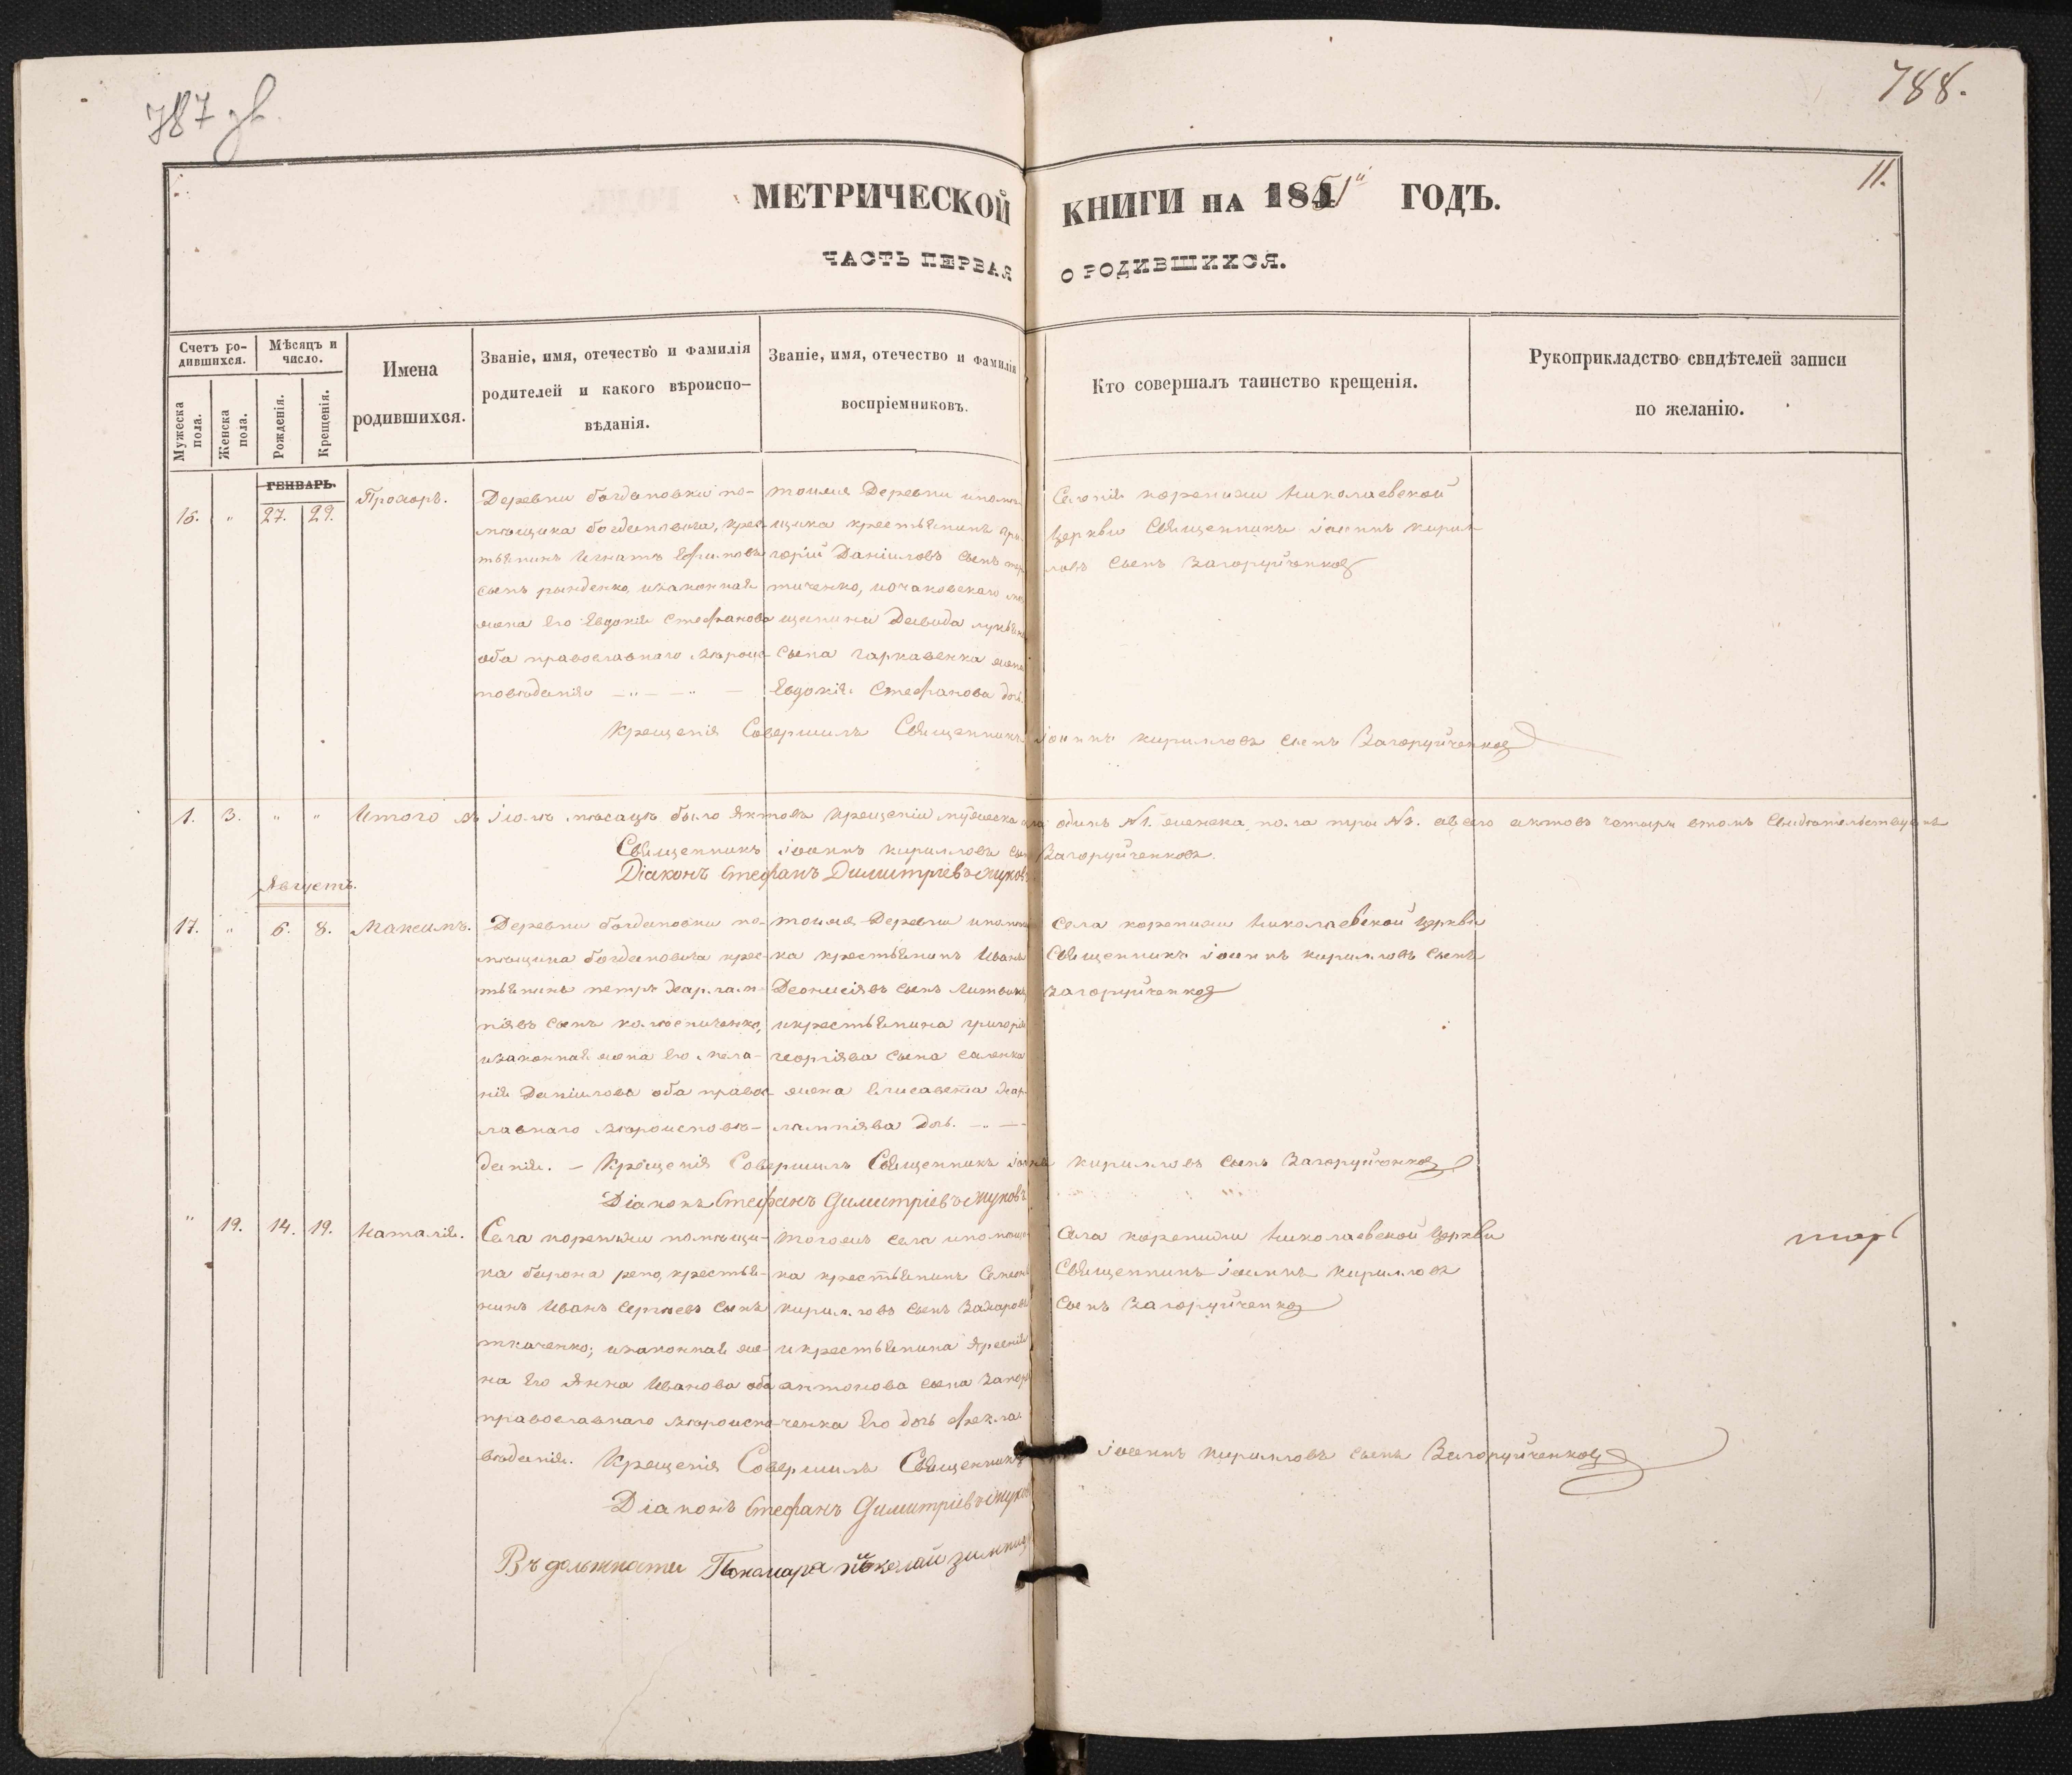 787 зв.
788.
11.
МЕТРИЧЕСКОЙ КНИГИ НА 1851й ГОДЪ.
ЧАСТЬ ПЕРВАЯ О РОДИВШИХСЯ.
Счетъ родившихся.
Мужеска пола.
Женска пола.
Мѣсяцъ и число.
Рожденія.
Крещенія.
Имена родившихся.
Званіе, имя, отечество и фамилія
родителей и какого вѣроиспо-
вѣданія.
Званіе, имя, отечество и фамилія
воспріемниковъ.
Кто совершалъ таинство крещенія.
Рукоприкладство свидѣтелей записи
по желанію.
ГЕНВАРЬ.
16. " 27. 29. Прохоръ.
Деревни богдановки по-
мѣщика богдановича, крес-
тьянинъ Игнатъ Ефимовъ
сынъ рынденко, изаконная
жена Его Евдокія Стефанова
оба православнаго вѣроис-
повѣданія — " — — " —
тоижя Деревни ипомѣ-
щика крестьянинъ гри-
горій Даніиловъ сынъ
тиченко, иочаковскаго
щанина Давида
сына гаркавенка жена
Евдокія Стефанова дочь.
николаевской
Церкви Священникъ іоаннъ кирил-
ловъ сынъ Загоруйченковъ
Крещенія Совершилъ Священникъ іоаннъ кирилловъ сынъ Загоруйченковъ
1. 3. " " Итого въ іюлѣ мѣсяцѣ было Актовъ крещенія мужеска пола одинъ №1. женска пола три №3. авсего актовъ четыри втомъ Свидѣтельствуемъ
Священникъ іоаннъ кирилловъ сынъ Загоруйченковъ.
Діаконъ Стефанъ Димитріевъ Жуковъ
Августъ.
17. " 6. 8. Максимъ.
Деревни богдановки по-
мѣщика богдановича крес-
тьянинъ петръ харлам-
піевъ сынъ колѣсниченко,
изаконная жена Его пела-
гія Даніилова оба правос-
лавнаго вѣроисповѣ-
данія. —
тоижя Деревни ипомѣщи-
ка крестьянинъ Иванъ
Деонисіевъ сынъ Литвин
икрестьянина григорія
георгіева сына
жена Елисавета хар-
лампіева дочь. — " —
Села николаевской церкви
Священникъ іоаннъ кирилловъ сынъ
Загоруйченковъ
Крещенія Совершилъ Священникъ іоаннъ кирилловъ сынъ Загоруйченковъ
Діаконъ Стефанъ Димитріевъ Жуковъ
" 19. 14. 19. Наталія.
Села помѣщи-
ка барона крестья-
нинъ Иванъ Сергѣевъ сынъ
ткаченко; изаконная же-
на Его Анна Иванова оба
православнаго вѣроиспо-
вѣданія.
тогожъ села ипомѣщи-
ка крестьянинъ Семіонъ
кирилловъ сынъ Захаровъ
икрестьянина Арсенія
антонова сына
ченка Его дочь фекла.
Села николаевской Церкви
Священникъ іоаннъ кирилловъ
сынъ Загоруйченковъ
Крещенія Совершилъ Священникъ іоаннъ кирилловъ сынъ Загоруйченковъ
Діаконъ Стефанъ Димитріевъ Жуковъ
Въ должности Пономаря Николай